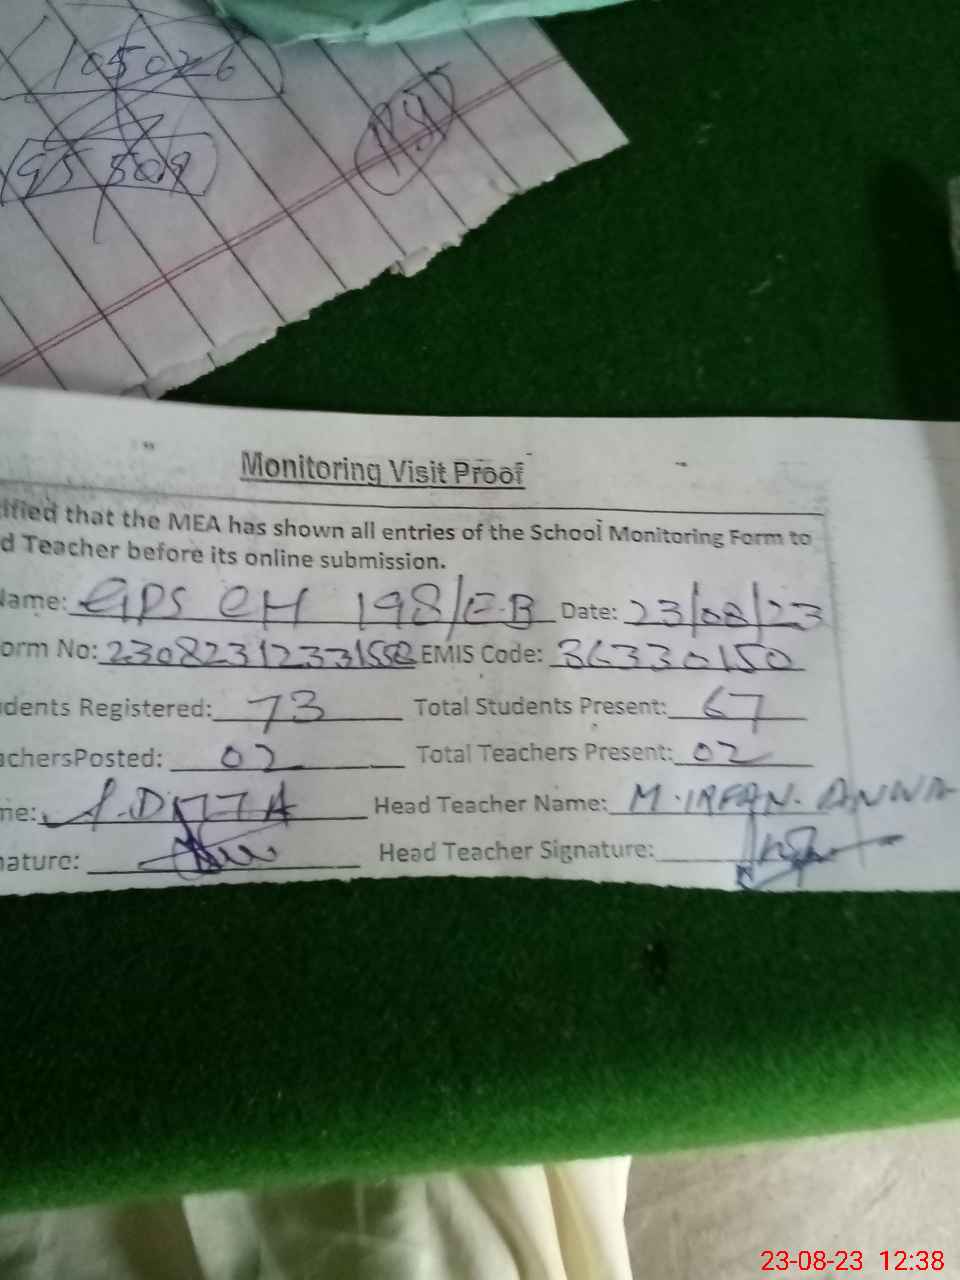 105026
95509
Monitoring Visit Proof
ified that the MEA has shown all entries of the School Monitoring Form to
d Teacher before its online submission.
Name: GPS CH 198/E.B Date: 23/08/23
orm No: EMIS Code: 36330150
dents Registered: 73 Total Students Present: 67
achersPosted: 02 Total Teachers Present: 02
me: A.DITTA Head Teacher Name: M.IRFAN.ANWA
nature: Head Teacher Signature:
23-08-23 12:38